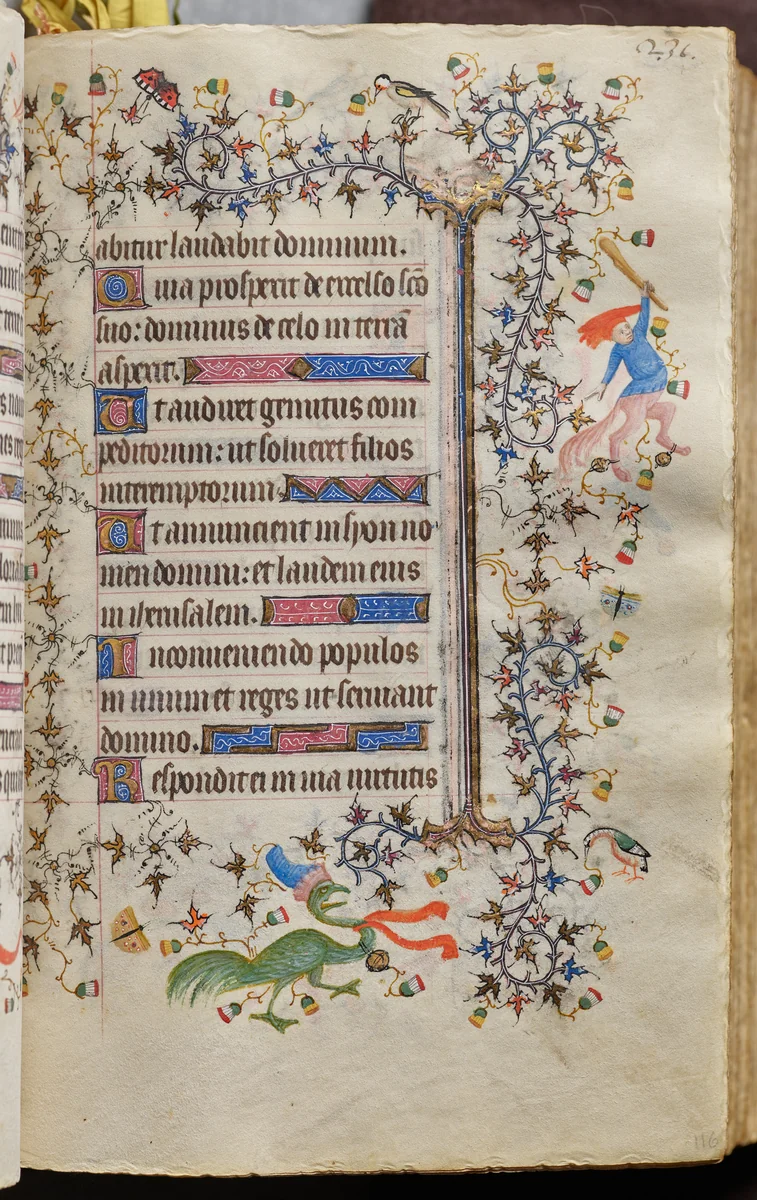 236.
abitur laudabit dominum.
Quia prosperit de excelso sc̄o
suo: dominus de celo in terrā
asperit.
Ut audiret gemitus com
peditorum: ut solueret filios
interemptorum
Ut annuncient in syon no
men domini: et laudem eius
in iherusalem.
In conueniendo populos
in unum et reges ut seruiant
domino.
Respondit ei in uia uirtutis
116